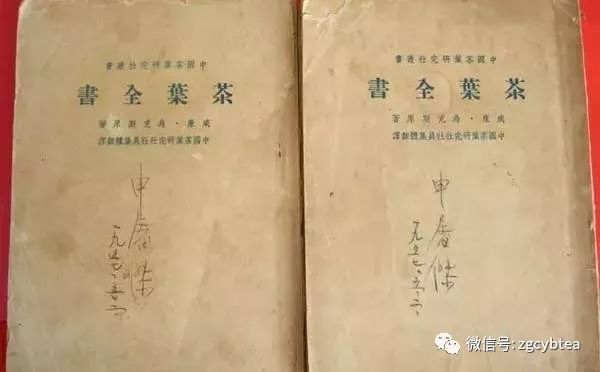 中國茶葉研究社叢書
茶葉全書
威廉·烏克斯原著
中國茶葉研究社社員集體翻譯
申屠傑
一九五七、五、二
中國茶葉研究社叢書
茶葉全書
威廉·烏克斯原著
中國茶葉研究社社員集體翻譯
申屠傑
一九五七、五、二
微信号: zgcybtea